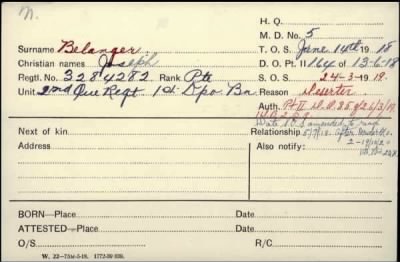 M.
H. Q.
M. D. No. 5
Surname Belanger. T. O. S. June 14th 1918
Christian names Joseph D. O. Pt. II 164 of 13-6-18
Regtl. No. 3284282 Rank Pte S. O. S. 24-3-19 19.
Unit 2nd Que Regt 1st Dpo Bn Reason Deserter
Auth. Pt II D.O. 85 of 26/3/19
Next of kin Relationship 5/7/18.
Address Also notify:
BORN—Place Date
ATTESTED—Place Date
O/S R/C
W. 22—75M-5-18. 1772-39 839.